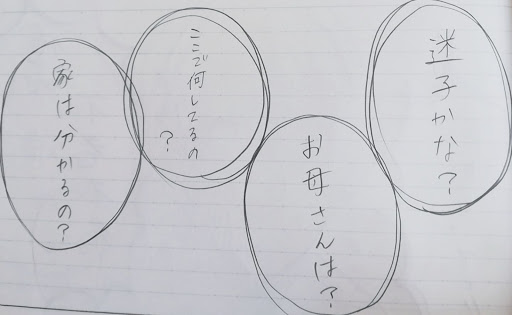 迷子かな？
お母さんは？
ここで何してるの？
家は分かるの？